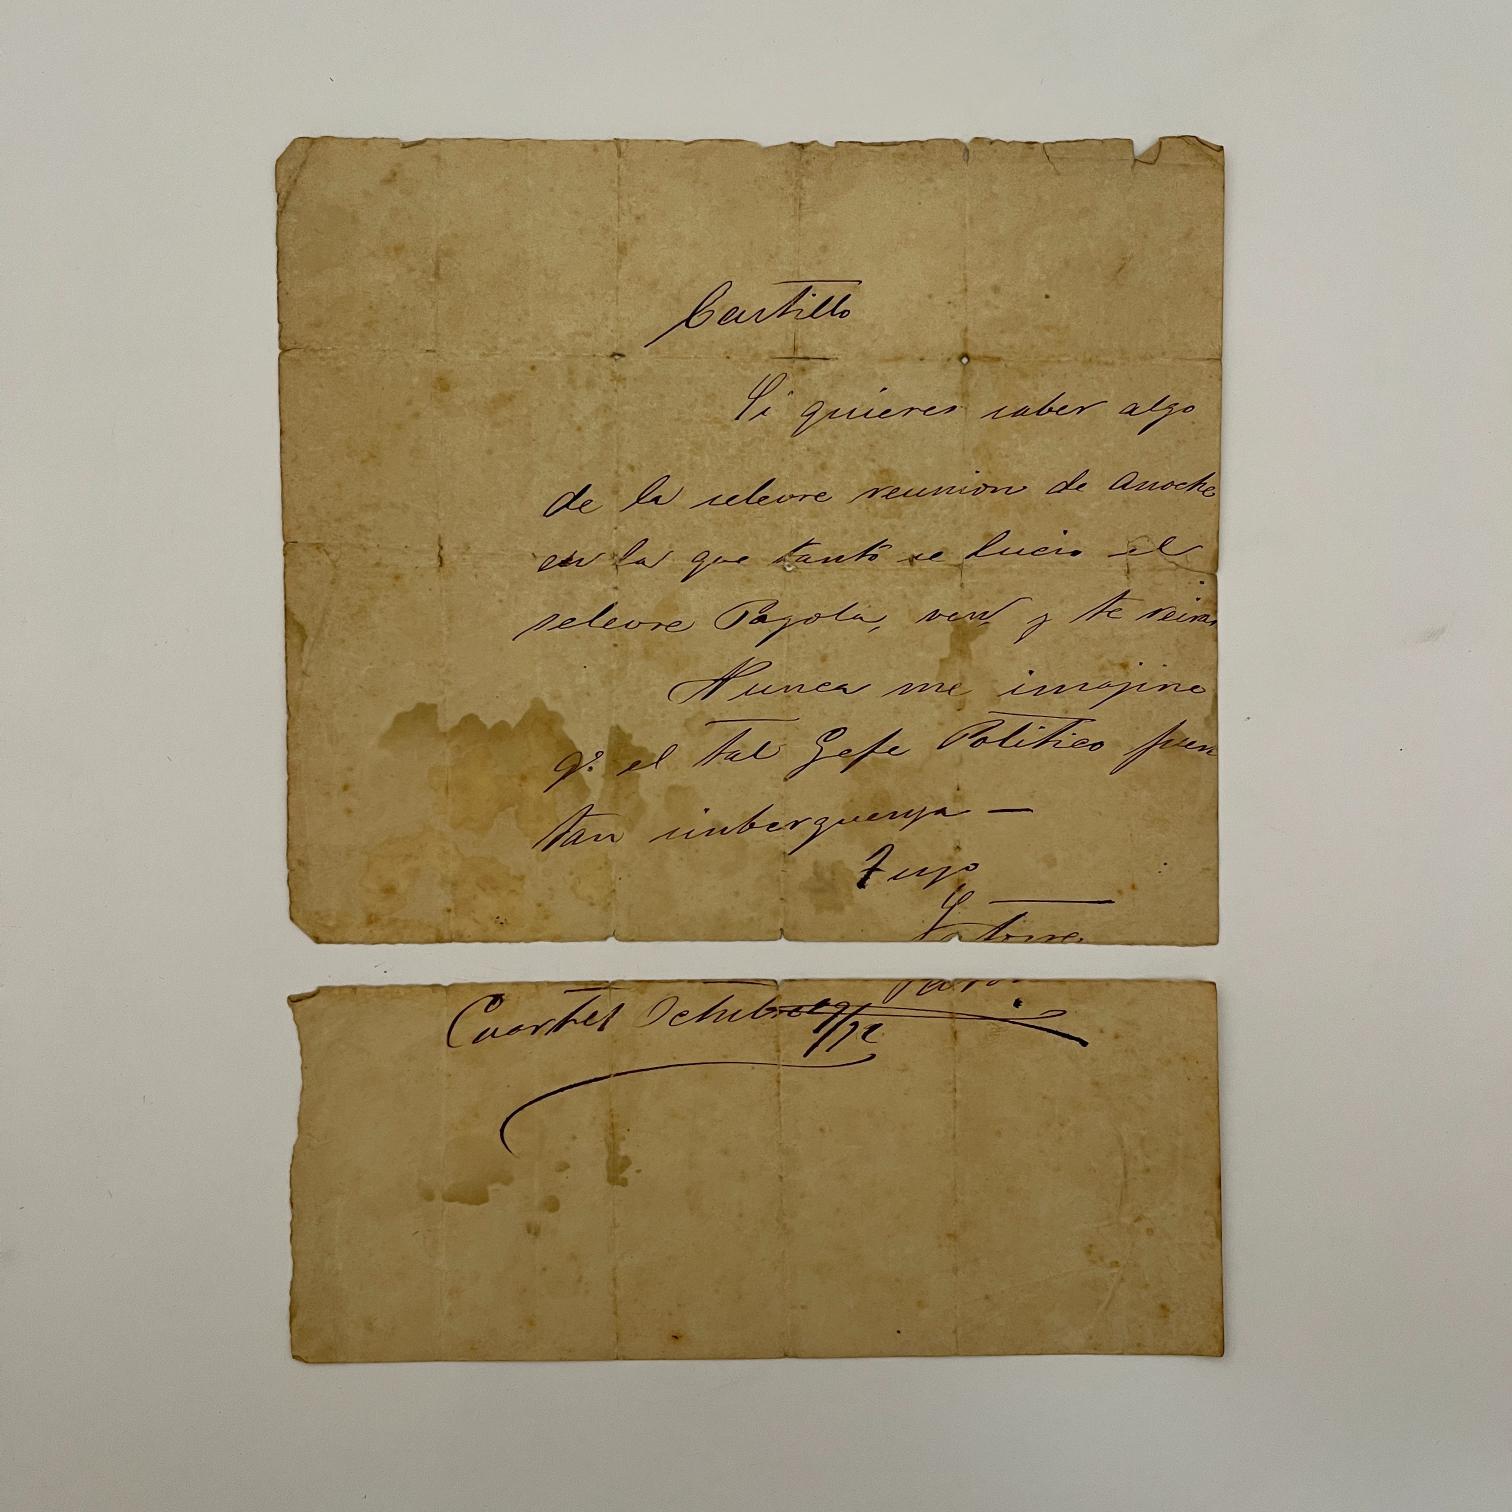 Castillo
Si quieres saber algo
de la selevre reunion de anoche
en la que tanto se lucio el
selevre Pagola, ven y te reiras
Nunca me imajine
q.e el tal Gefe Politico fuera
tan sinberguenza —
Tuyo
Latorre
Cuartel Octubre 9/72